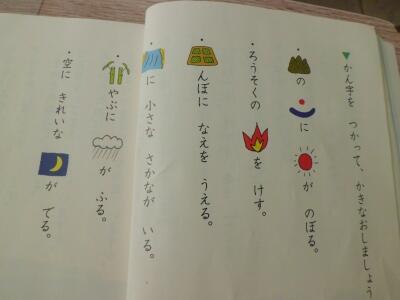 ▼かん字を つかって、かきなおしましょう
・の に が のぼる。
・ろうそくの を けす。
・んぼに なえを うえる。
・に 小さな さかなが いる。
・やぶに が ふる。
・空に きれいな が でる。